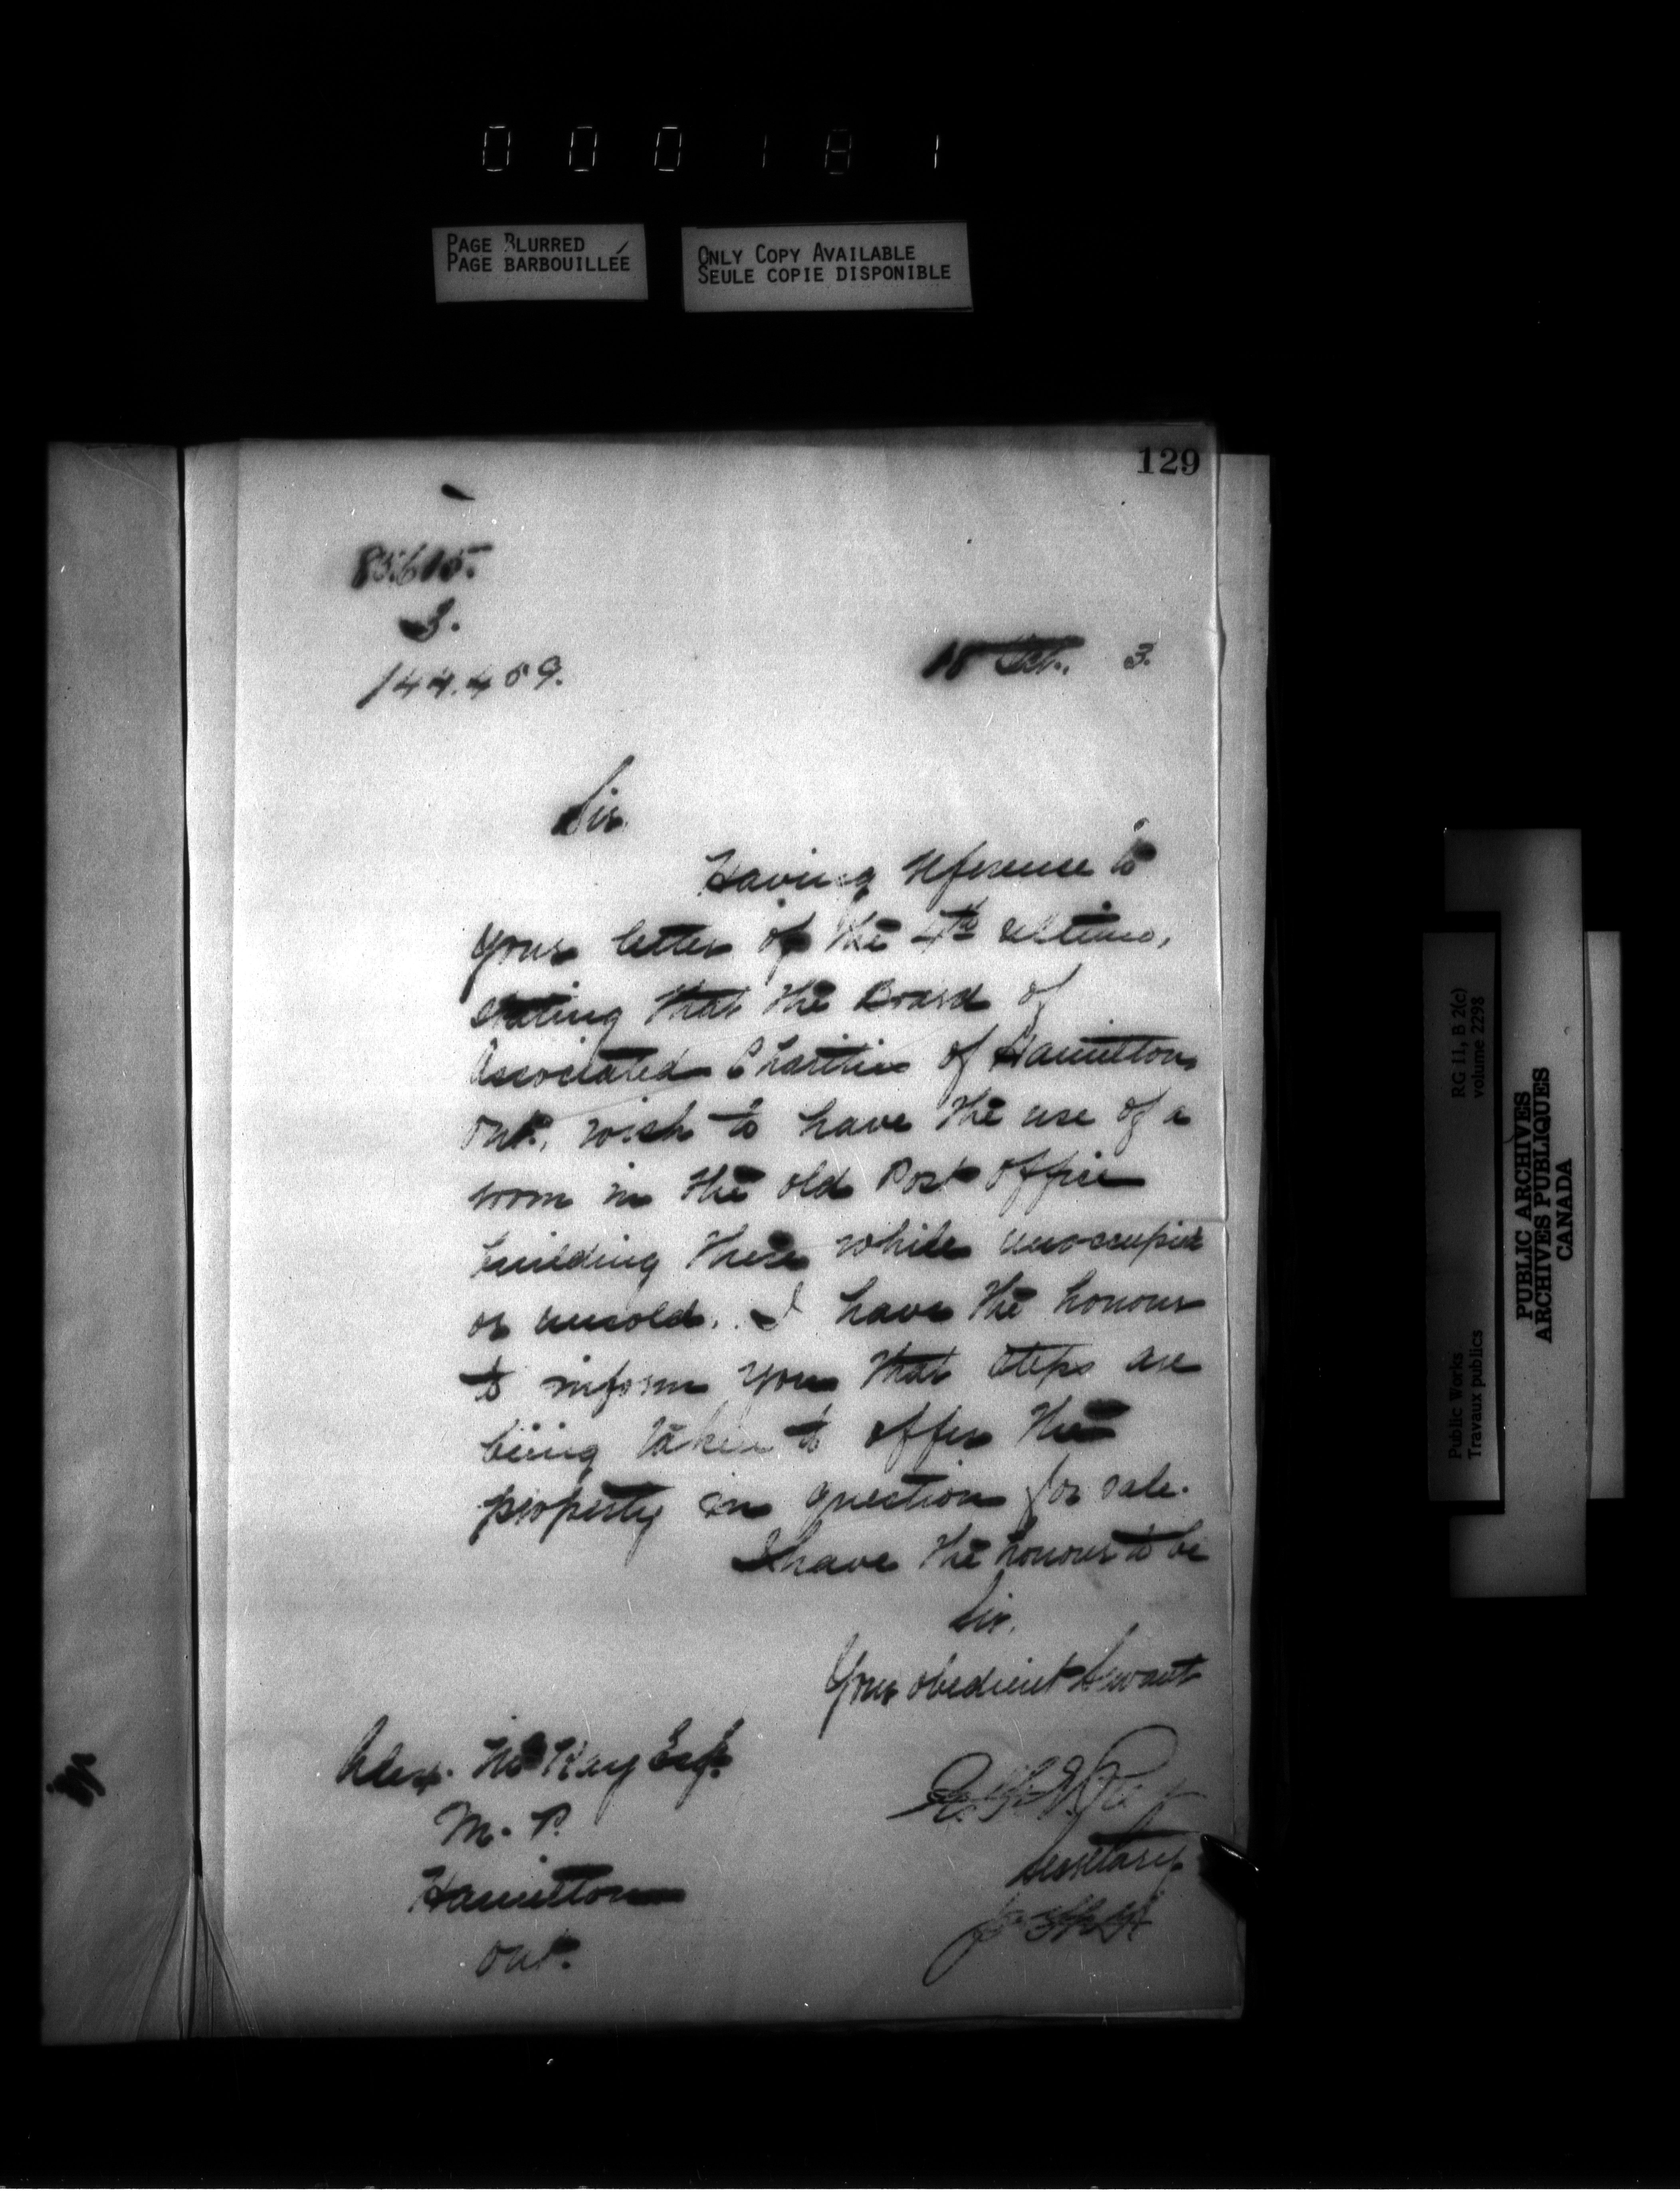 000181
PAGE BLURRED
PAGE BARBOUILLÉE
ONLY COPY AVAILABLE
SEULE COPIE DISPONIBLE
129
85.605.
3.
144.459.
Oct. 3.
Sir
Having reference to
your letter of the 4th ultimo,
stating that the Board of
Associated Charities of Hamilton
Ont., wish to have the use of a
room in the old Post Office
building there while unoccupied
or unsold. I have the honour
to inform you that steps are
being taken to offer the
property in question for sale.
I have the honour to be
Sir,
Your obedient Servant
Secretary
Alex. McKay Esq.
M. P.
Hamilton
Ont.
Public Works
Travaux publics
RG 11, B 2(c)
volume 2298
PUBLIC ARCHIVES
ARCHIVES PUBLIQUES
CANADA